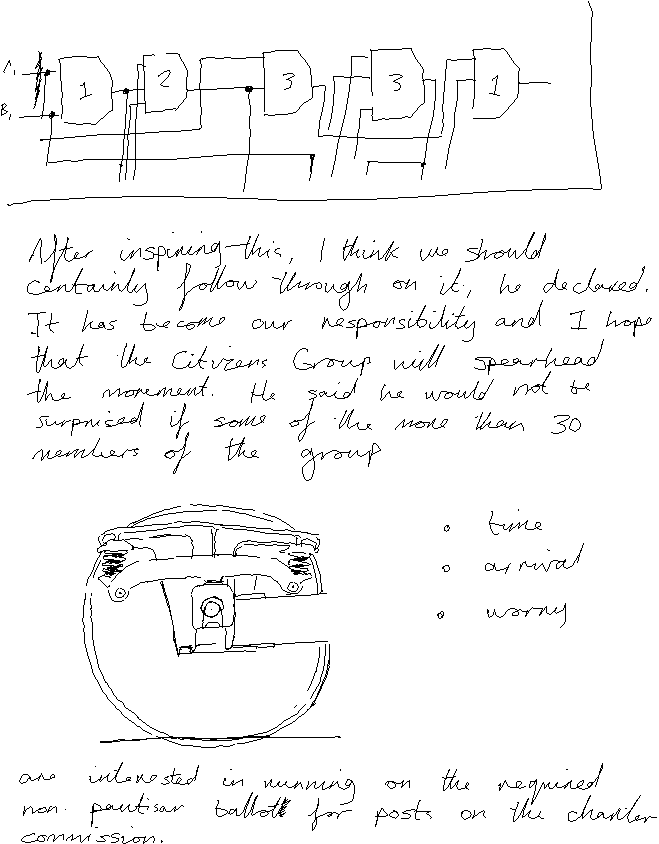 A₁
B₁
1
2
3
3
1
After inspiring this, I think we should
certainly follow through on it, he declared.
It has become our responsibility and I hope
that the Citizens Group will spearhead
the movement. He said he would not be
surprised if some of the more than 30
members of the group
◦ time
◦ arrival
◦ worry
are interested in running on the required
non partisan ballot for posts on the charter
commission.